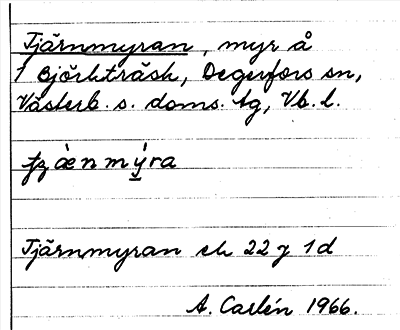 Tjärnmyran, myr å
1 Björkträsk, Degerfors sn,
Västerb. s. doms. tg, Vb. l.
Tjärnmyran ek 22 J 1d
A. Carlén 1966.